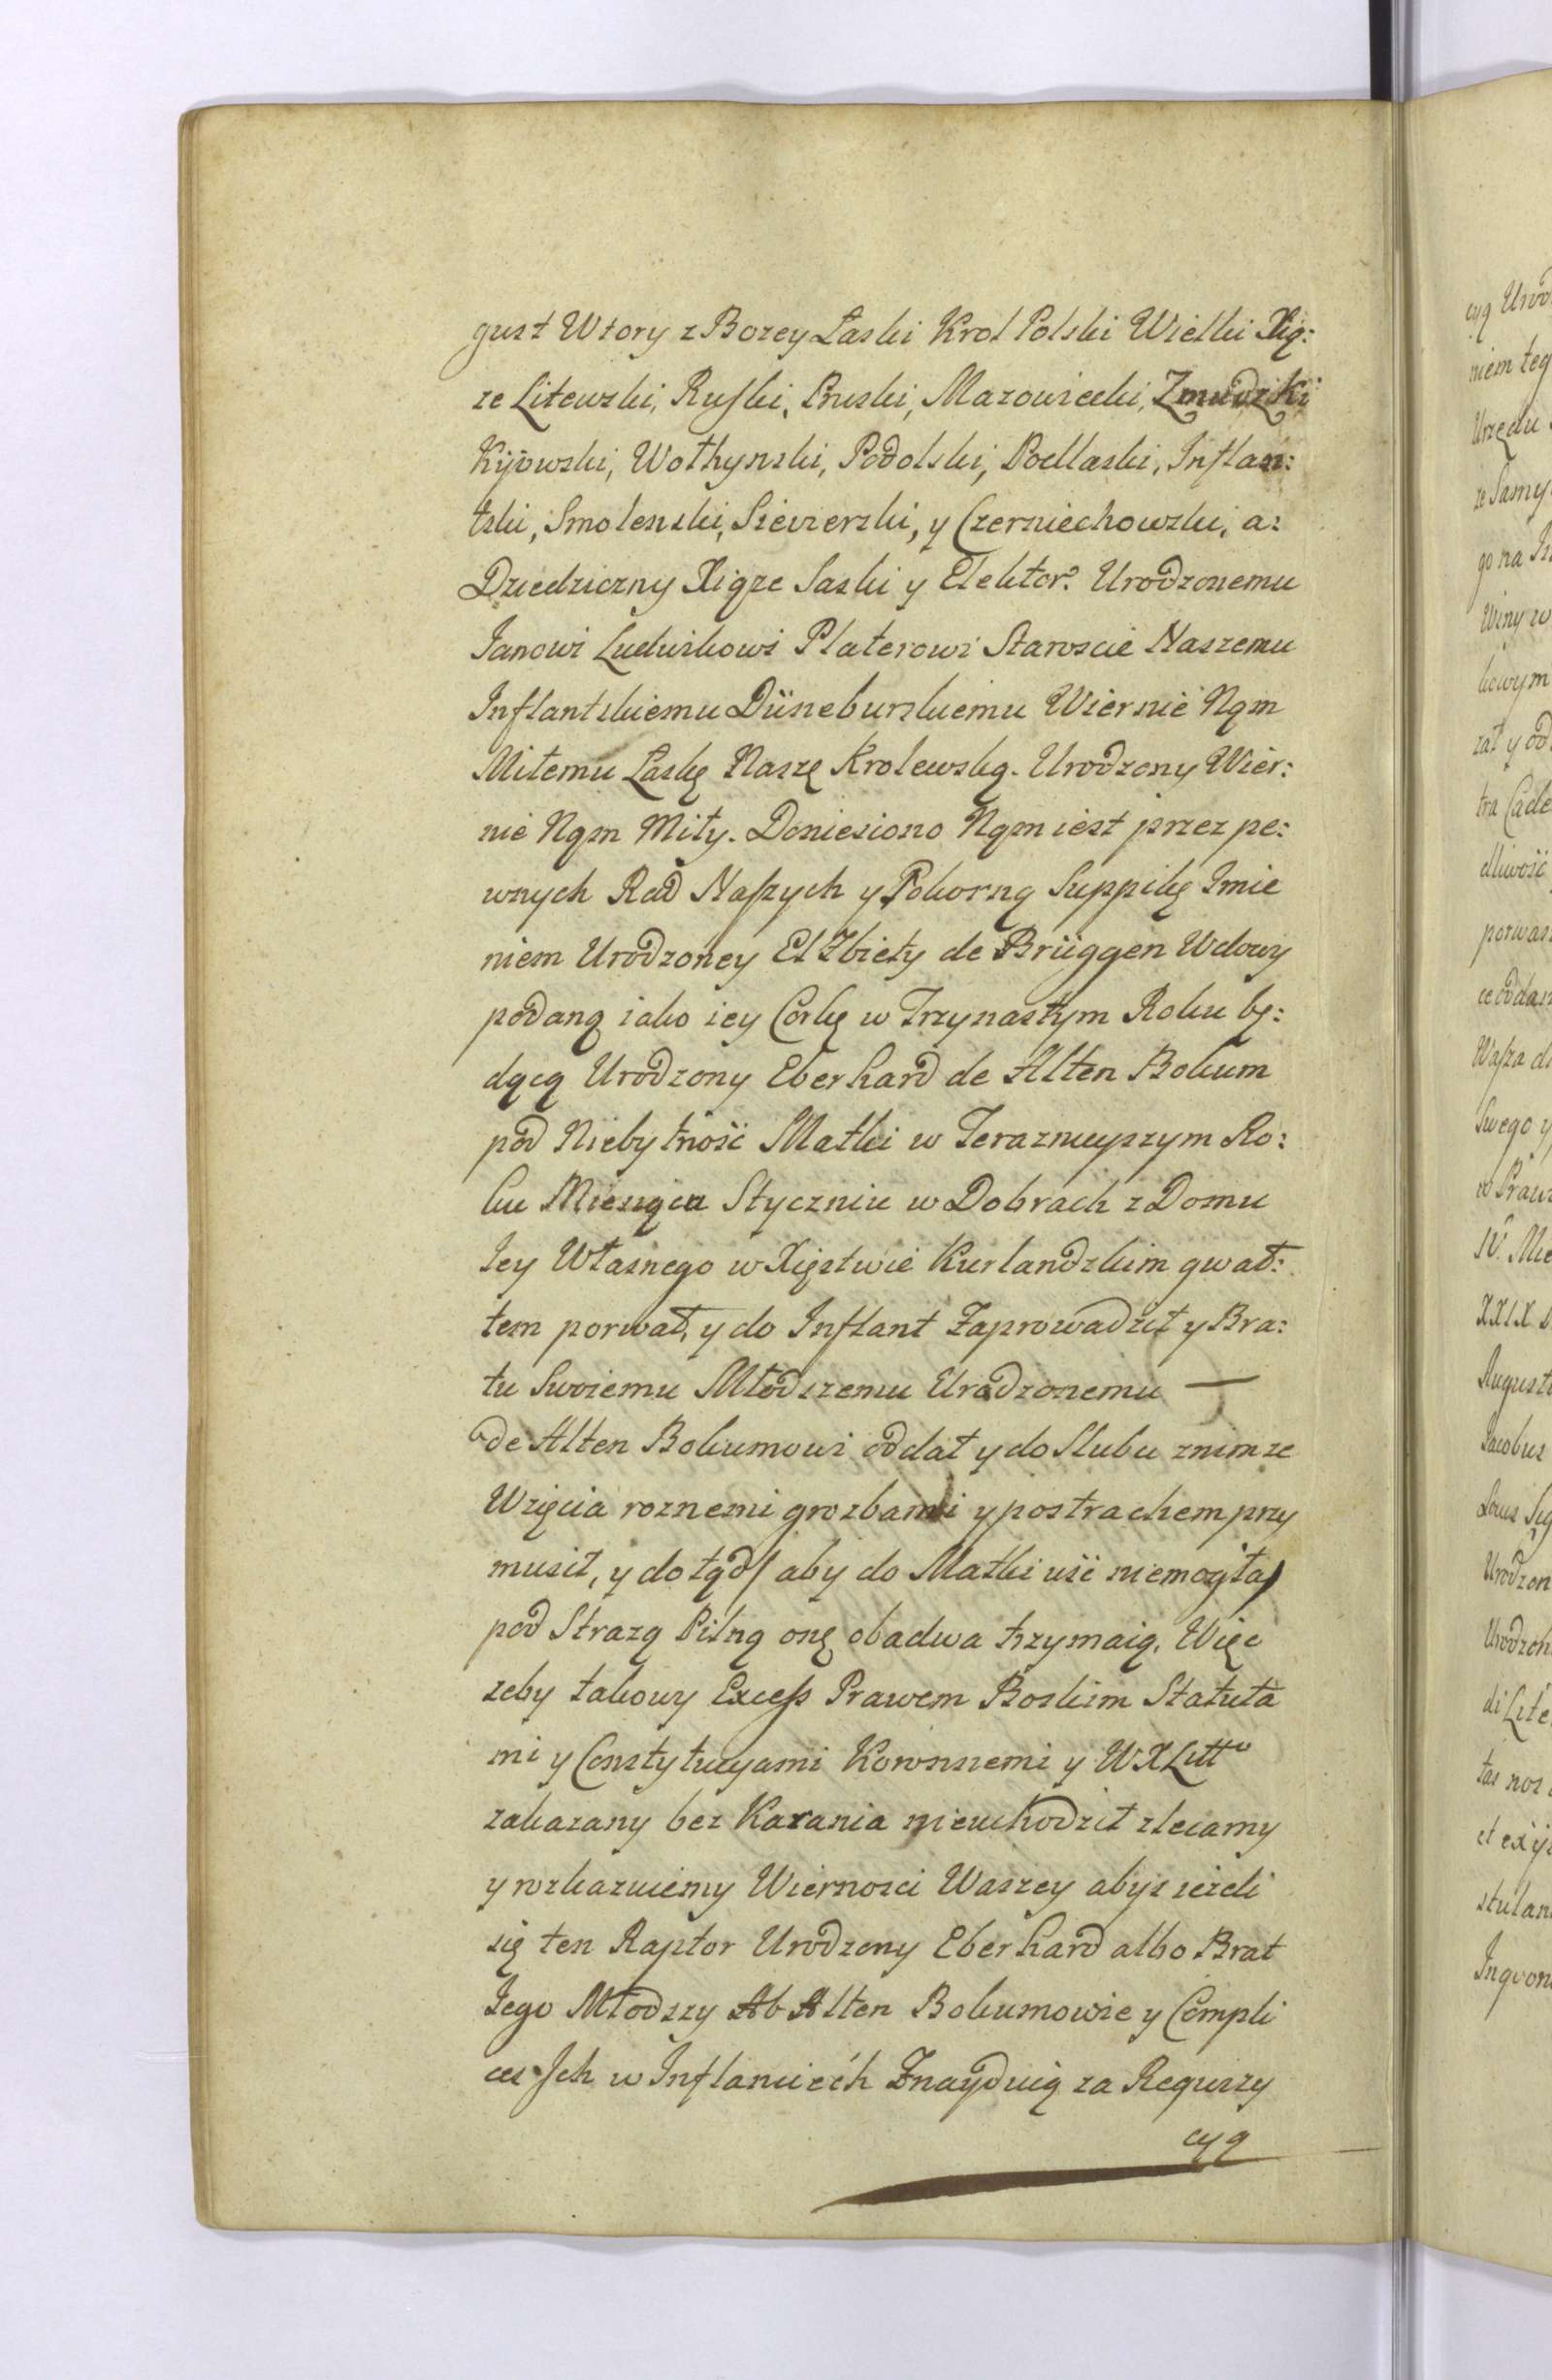 gust Wtory z Bozey Łaski Krol Polski Wielki Xią:
ze Litewski, Ruſki, Pruski, Mazowiecki, Zmudzki
Kijowski, Wołhynski, Podolski, Podlaski, Inflan:
tski, Smolenski, Siewierski, y Czerniechowski, a:
Dziedziczny Xiąze Saski y Elektor. Urodzonemu
Janowi Ludwikowi Platerowi Staroscie Naszemu
Inflantskiemu Düneburskiemu Wiernie Nąm
Miłemu Łaskę Naszę Krolewską. Urodzony Wier:
nie Nąm Miły. Doniesiono Nąm iest przez pe:
wnych Rad Naſzych y Pokorną Supplikę Imie
niem Urodzoney Elzbiety de Brüggen Wdowy
podaną iako iey Corkę w Trzynastym Roku bę:
dącą Urodzony Eberhard de Alten Bokum
pod Niebytność Matki w Teraznieyszym Ro:
ku Miesiąca Styczniu w Dobrach z Domu
Iey Własnego w Xięstwie Kurlandzkim gwał:
tem porwał, y do Inflant Zaprowadził y Bra:
tu Swoiemu Młodszemu Urodzonemu —
de Alten Bokumowi oddał y do Slubu znimze
Wzięcia roznemi grozbami y postrachem przy
musił, y dotąd/ aby do Matki uść niemogła)
pod Strazą Pilną onę obadwa trzymaią. Więc
zeby takowy Exceſs Prawem Boskim Statuta
mi y Constytucyami Koronnemi y WXLitto
zakazany bez Karania nieuchodził zlecamy
y rozkazuiemy Wiernosci Waszey abys iezeli
się ten Raptor Urodzony Eberhard albo Brat
Iego Młodszy Ab Alten Bokumowie y Compli
ces Ich w Inflanciech Znayduią za Requizy
cyą